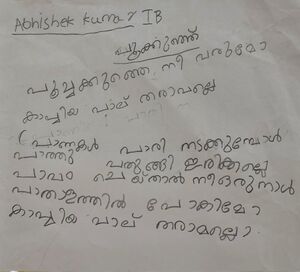 Abhishek kumar IB
പൂക്കുഞ്ഞ്
പൂച്ചക്കുഞ്ഞെ നീ വരുമോ
കാച്ചിയ പാല് തരാമല്ലെ
പാറ്റകൾ പാറി നടക്കുമ്പോൾ
പാത്തു പതുങ്ങി ഇരിക്കല്ലെ
പാപം ചെയ്താൽ നീഒരുനാൾ
പാതാളത്തിൽ പോകിമോ
കാച്ചിയ പാല് തരാമല്ലൊ.